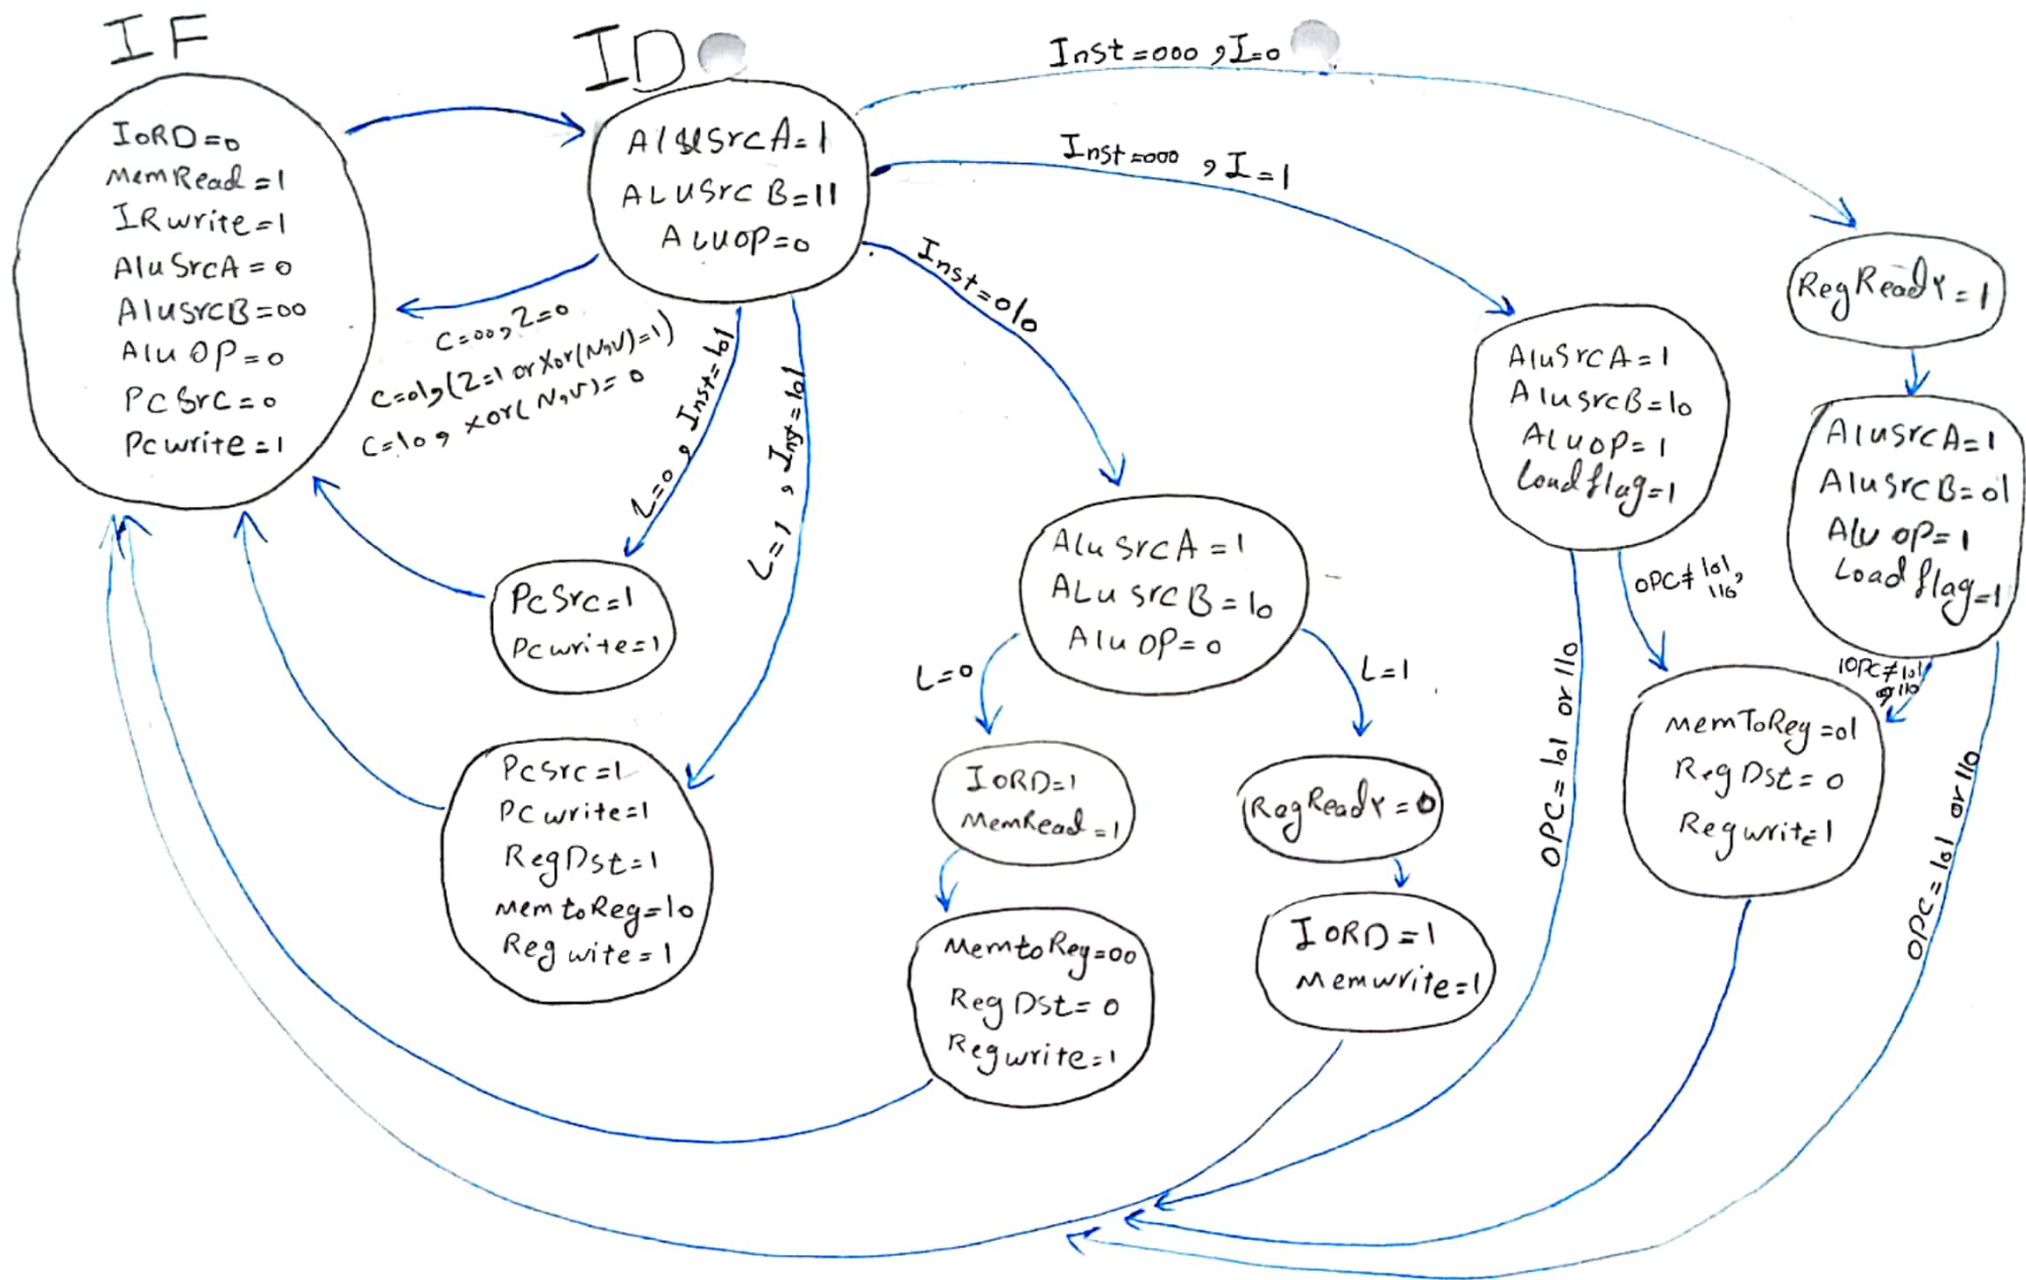 IF
IORD=0
MemRead=1
IRwrite=1
AluSrcA=0
AlusrcB=00
Alu OP=0
PcSrc=0
Pcwrite=1
ID
AluSrcA=1
ALUSrc B=11
ALUOP=0
Inst=000 , I=0
Inst=000 , I=1
Inst=010
C=00, Z=0
C=01, (Z=1 or Xor(N,V)=1)
C=10, xor(N,V)=0
L=0, Inst=101
L=1, Inst=101
PcSrc=1
Pcwrite=1
PcSrc=1
PCwrite=1
RegDst=1
MemtoReg=10
Reg wite=1
Alu SrcA=1
ALu srcB=10
Alu OP=0
L=0
L=1
IORD=1
MemRead=1
MemtoReg=00
Reg Dst=0
Regwrite=1
RegReadY=0
IORD=1
Memwrite=1
AluSrcA=1
AlusrcB=10
ALUOP=1
Loadflag=1
OPC≠101,
110
OPC=101 or 110
RegReadY=1
AlusrcA=1
AlusrcB=01
Alu OP=1
Load flag=1
OPC≠101
110
OPC=101 or 110
MemToReg=01
RegDst=0
Regwrite=1